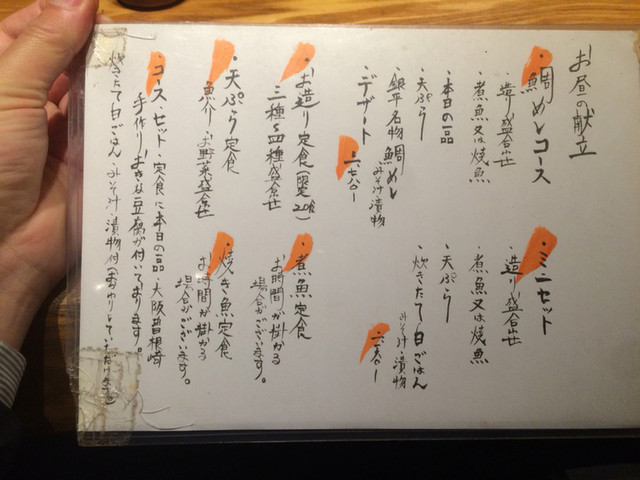 お昼の献立
鯛めしコース
・造り盛合せ
・煮魚又は焼魚
・本日の一品
・天ぷら
・銀平名物 鯛めし
・みそ汁・漬物
・デザート
・ミニセット
・造り盛合せ
・煮魚又は焼魚
・天ぷら
・炊きたて白ごはん
みそ汁・漬物
・お造り定食(限定20食)
三種〜四種盛合せ
・煮魚定食
お時間が掛かる
場合がございます。
・天ぷら定食
魚介・お野菜盛合せ
・焼き魚定食
お時間が掛かる
場合がございます。
・コース・セット・定食に本日の一品・大阪曽根崎
手作りおきな豆腐が付いております。
炊きたて白ごはん・みそ汁・漬物付